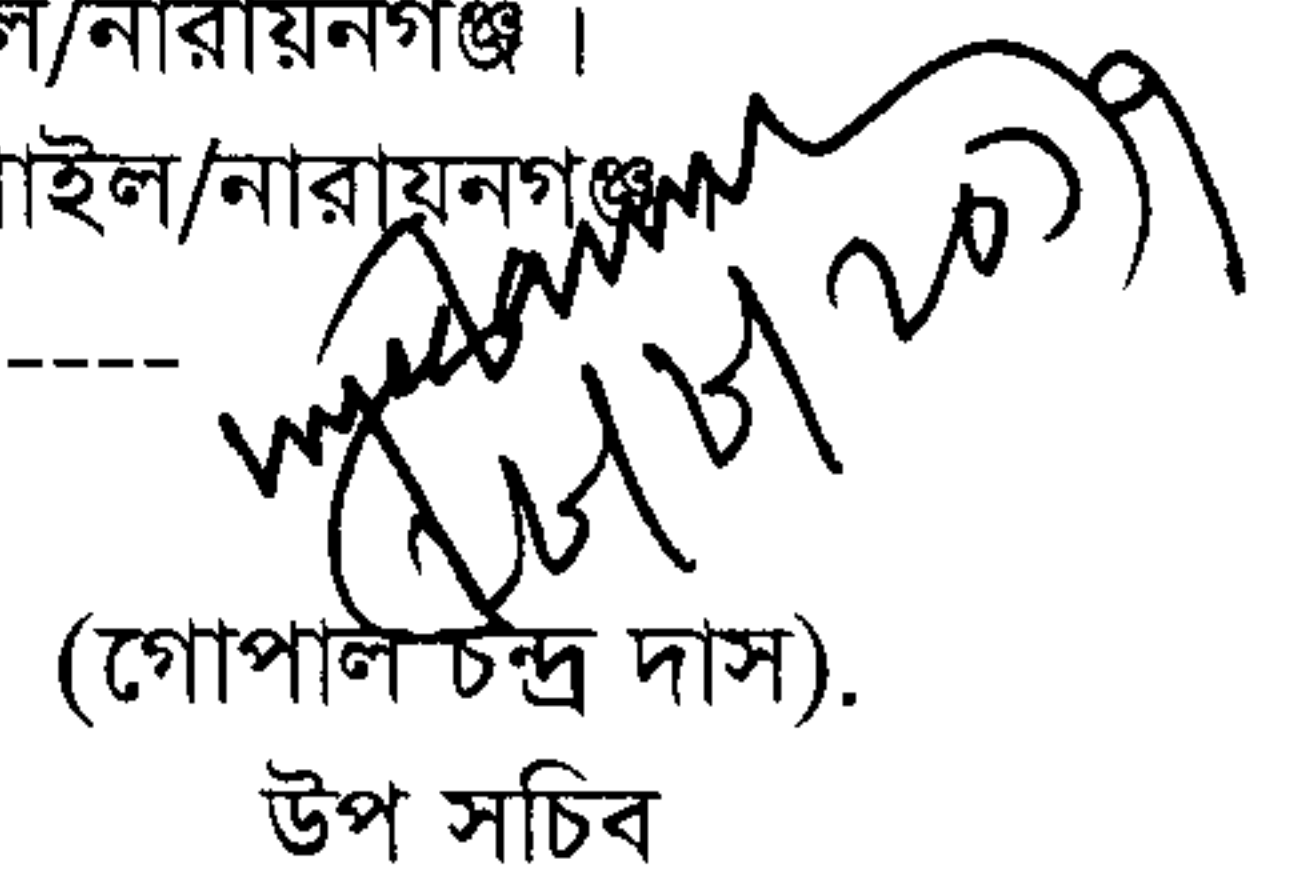 ল/নারায়নগঞ্জ ।
াইল/নারায়নগঞ্জ।
----
(গোপাল চন্দ্র দাস).
উপ সচিব